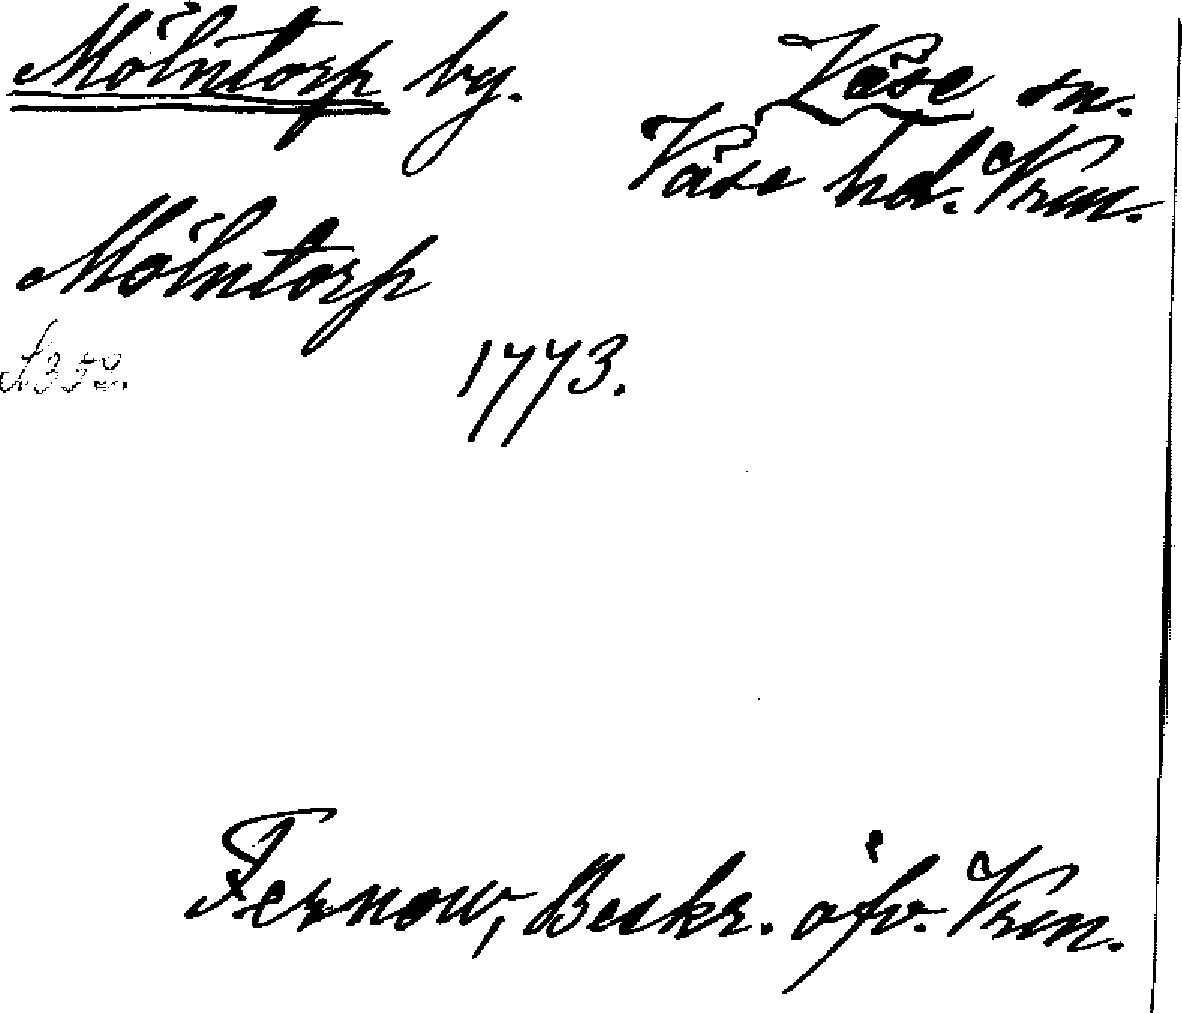 Mölntorp by.
Väse sn.
Väse hd. Vrm.
Mölntorp
1773.
Fernow, Beskr. öfv. Vrm.